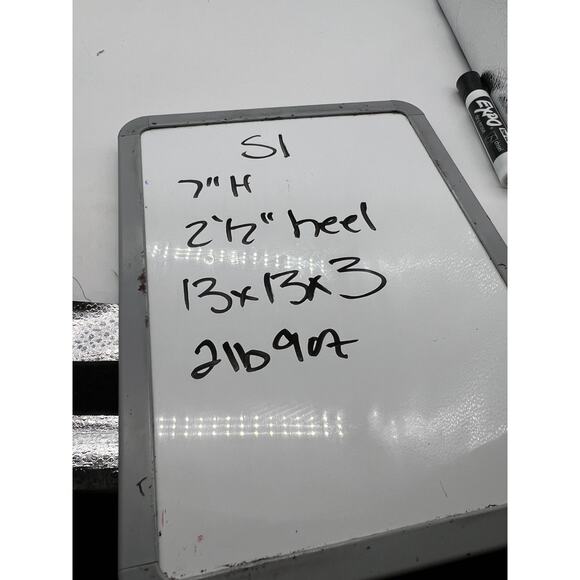 S1
7" H
2 1/2" heel
13x13x3
2lb 9oz
EXPO